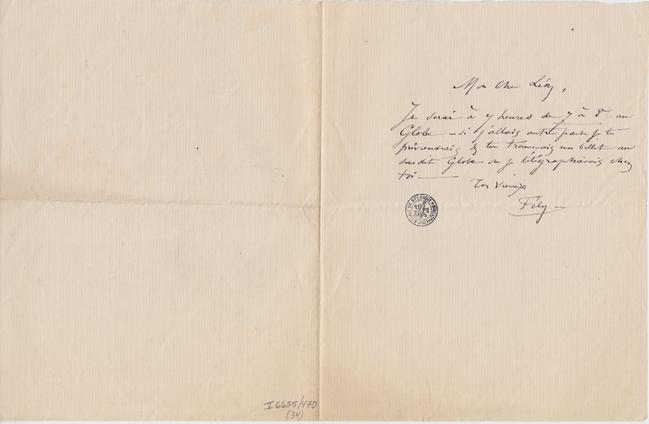 Mon cher Léon,
Je serai à 7 heures de 7 à 8 au
Globe – si j'allais autre part je te
préviendrais & tu trouverais un billet au
susdit Globe ou je télégraphierais chez
toi —
Ton Vieux
Fély —
I 6655/470
(34)